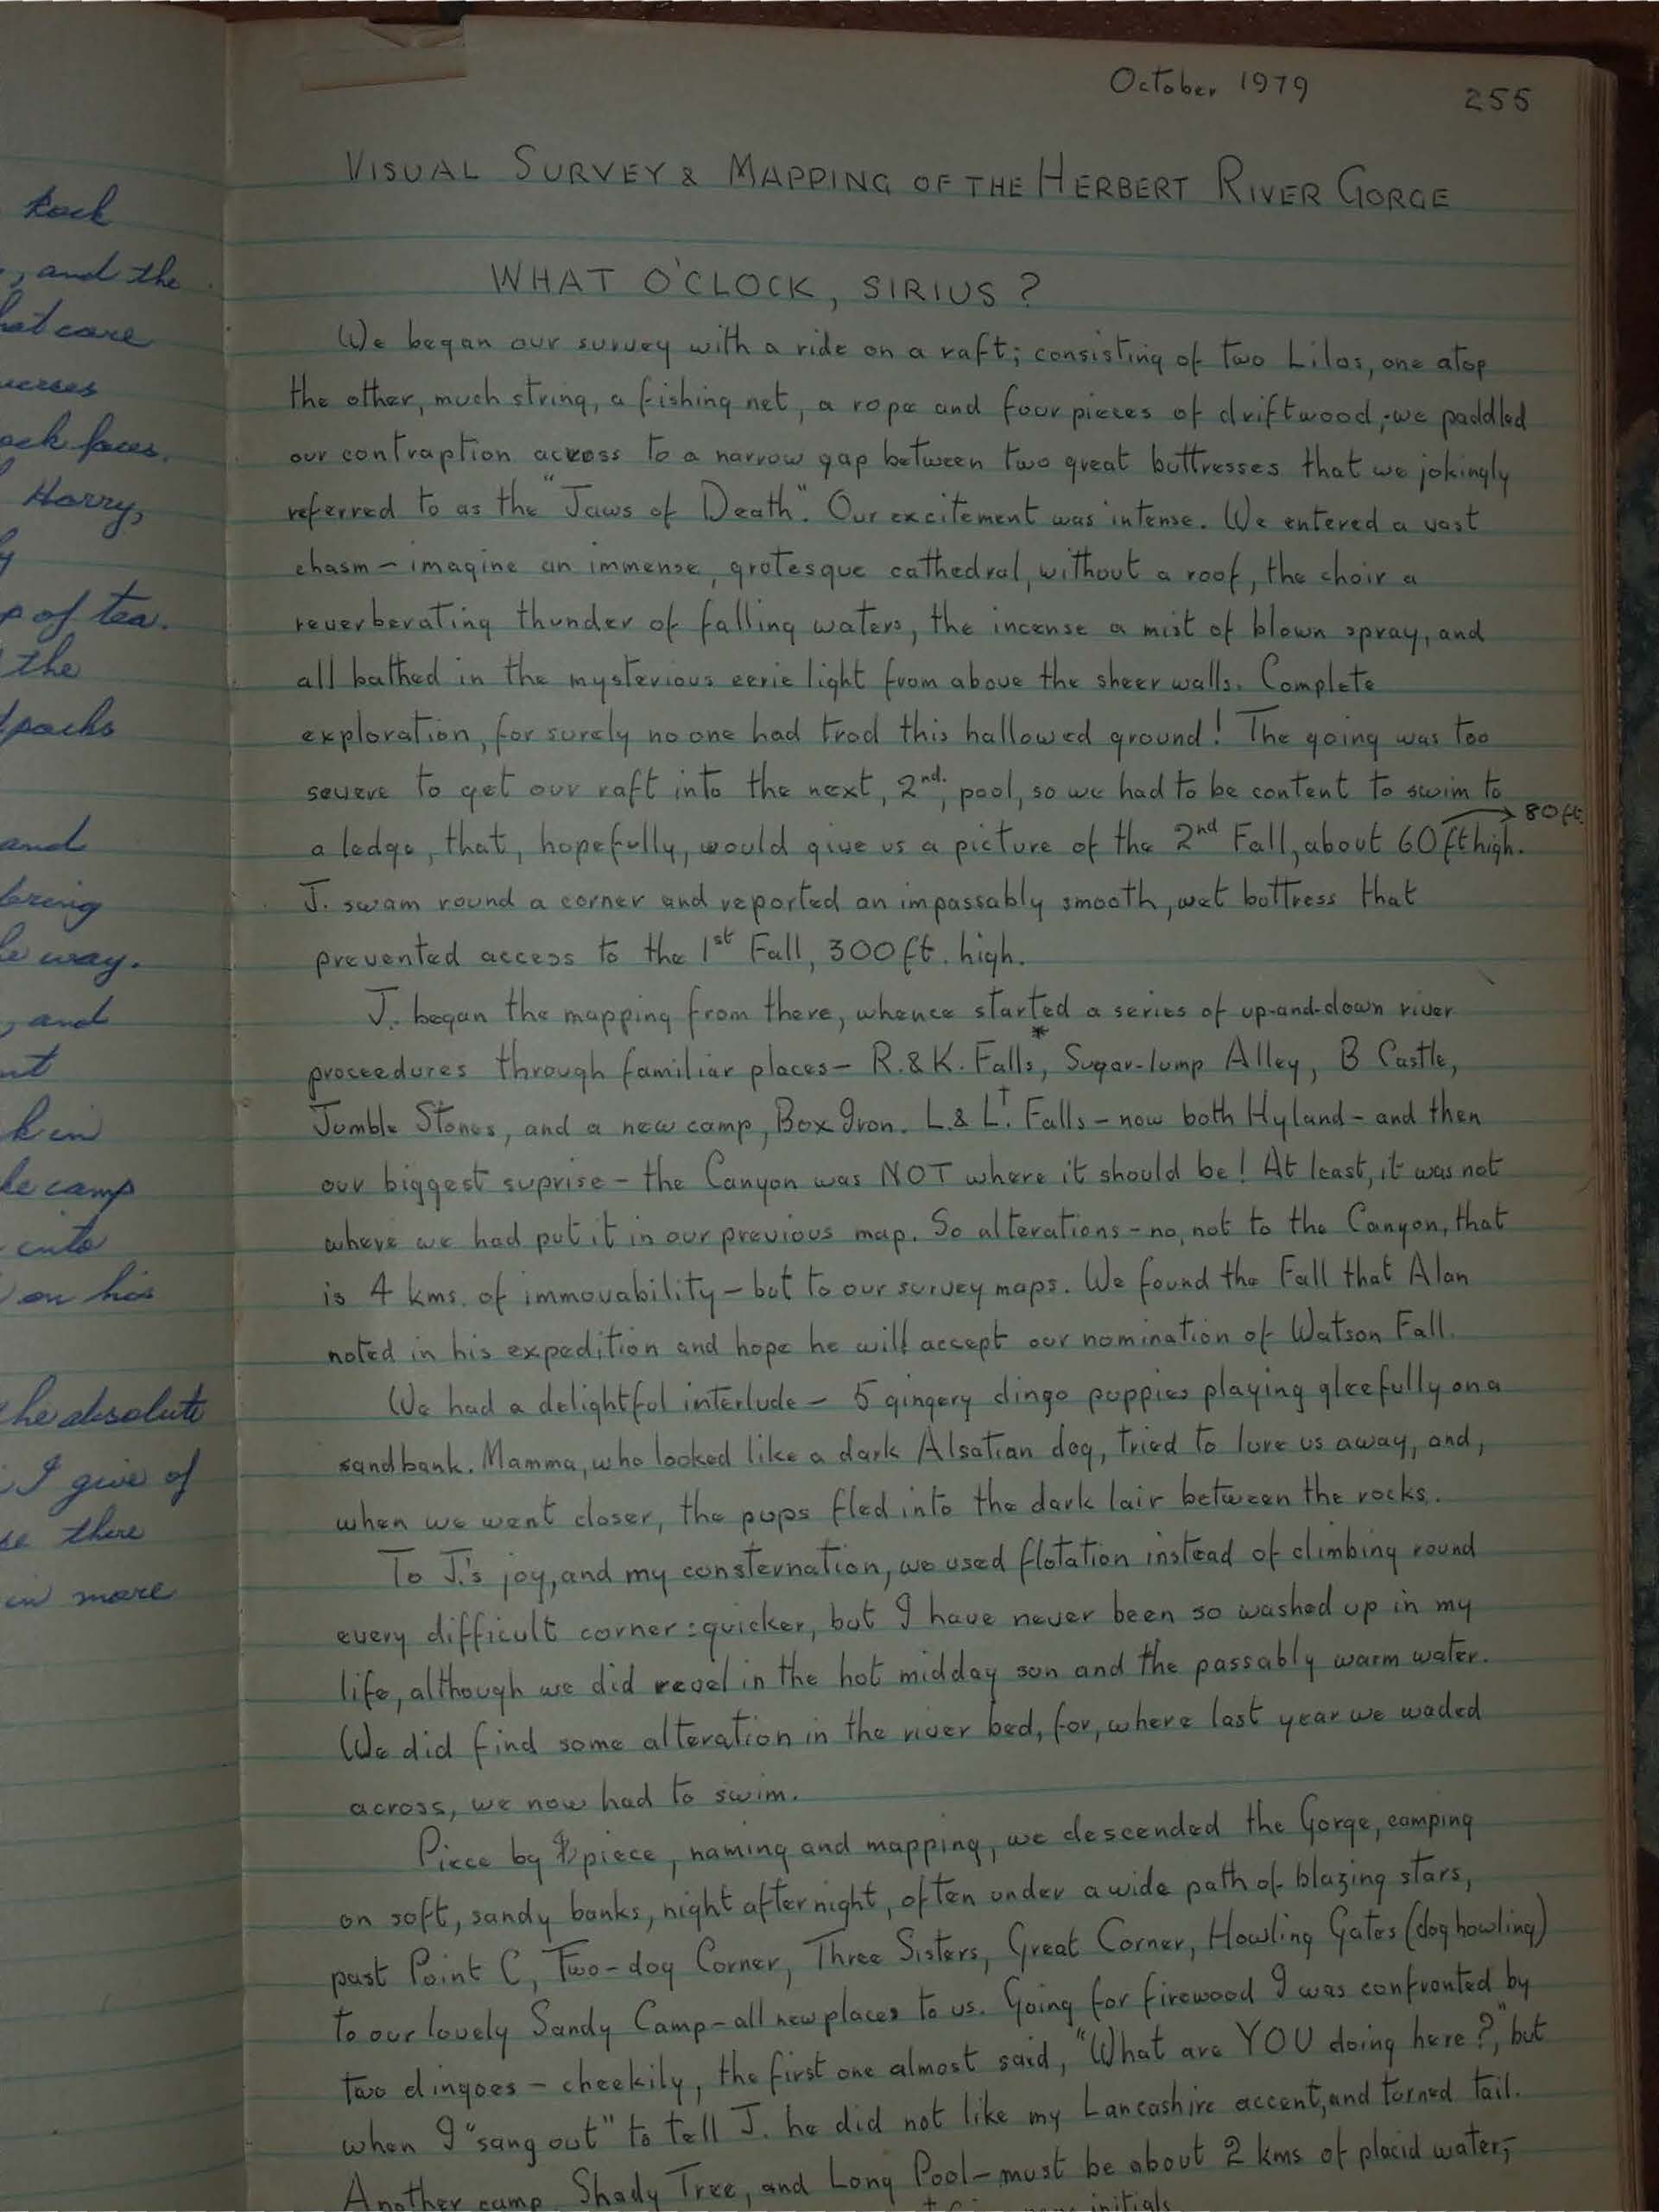 October 1979
255
VISUAL SURVEY & MAPPING OF THE HERBERT RIVER GORGE
WHAT O'CLOCK, SIRIUS ?
We began our survey with a ride on a raft; consisting of two Lilos, one atop
the other, much string, a fishing net, a rope and four pieces of driftwood; we paddled
our contraption across to a narrow gap between two great buttresses that we jokingly
referred to as the "Jaws of Death". Our excitement was intense. We entered a vast
chasm – imagine an immense, grotesque cathedral, without a roof, the choir a
reverberating thunder of falling waters, the incense a mist of blown spray, and
all bathed in the mysterious eerie light from above the sheer walls. Complete
exploration, for surely no one had trod this hallowed ground! The going was too
severe to get our raft into the next, 2nd, pool, so we had to be content to swim to
80 ft.
a ledge, that, hopefully, would give us a picture of the 2nd Fall, about 60 ft high.
J. swam round a corner and reported an impassably smooth, wet buttress that
prevented access to the 1st Fall, 300 ft. high.
J. began the mapping from there, whence started a series of up-and-down river
proceedures through familiar places – R. & K. Falls*, Sugar-lump Alley, B Castle,
Jumble Stones, and a new camp, Box Iron. L. & L.† Falls – now both Hyland – and then
our biggest suprise – the Canyon was NOT where it should be! At least, it was not
where we had put it in our previous map. So alterations – no, not to the Canyon, that
is 4 kms. of immovability – but to our survey maps. We found the Fall that Alan
noted in his expedition and hope he will accept our nomination of Watson Fall.
We had a delightful interlude – 5 gingery dingo puppies playing gleefully on a
sandbank. Mamma, who looked like a dark Alsatian dog, tried to lure us away, and,
when we went closer, the pups fled into the dark lair between the rocks.
To J.'s joy, and my consternation, we used flotation instead of climbing round
every difficult corner: quicker, but I have never been so washed up in my
life, although we did revel in the hot midday sun and the passably warm water.
We did find some alteration in the river bed, for, where last year we waded
across, we now had to swim.
Piece by piece, naming and mapping, we descended the Gorge, camping
on soft, sandy banks, night after night, often under a wide path of blazing stars,
past Point C, Two-dog Corner, Three Sisters, Great Corner, Howling Gates (dog howling)
to our lovely Sandy Camp – all new places to us. Going for firewood I was confronted by
two dingoes – cheekily, the first one almost said, "What are YOU doing here?", but
when I "sang out" to tell J. he did not like my Lancashire accent, and turned tail.
Another camp, Shady Tree, and Long Pool – must be about 2 kms of placid water,
initials
rock
, and the
hat care
verses
ock faces.
Harry,
y
p of tea.
the
packs
and
bering
le way.
, and
nt
k in
le camp
into
on his
the absolute
I give of
se there
in more